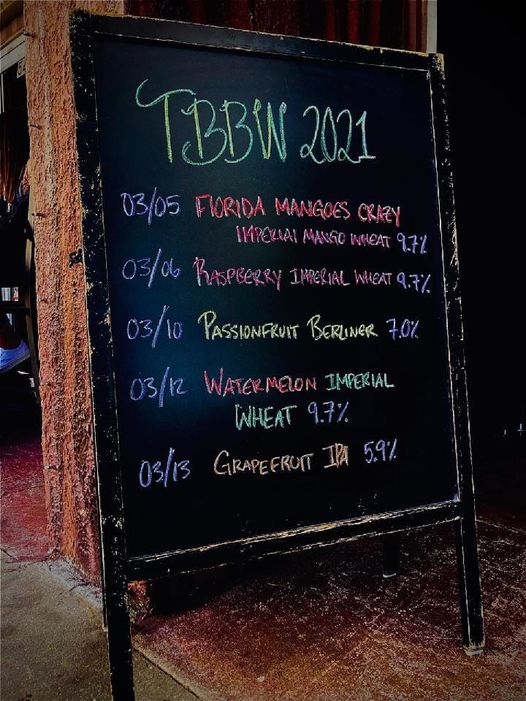 TBBW 2021
03/05 FLORIDA MANGOES CRAZY
IMPERIAL MANGO WHEAT 9.7%
03/06 RASPBERRY IMPERIAL WHEAT 9.7%
03/10 PASSIONFRUIT BERLINER 7.0%
03/12 WATERMELON IMPERIAL
WHEAT 9.7%
03/13 GRAPEFRUIT IPA 5.9%